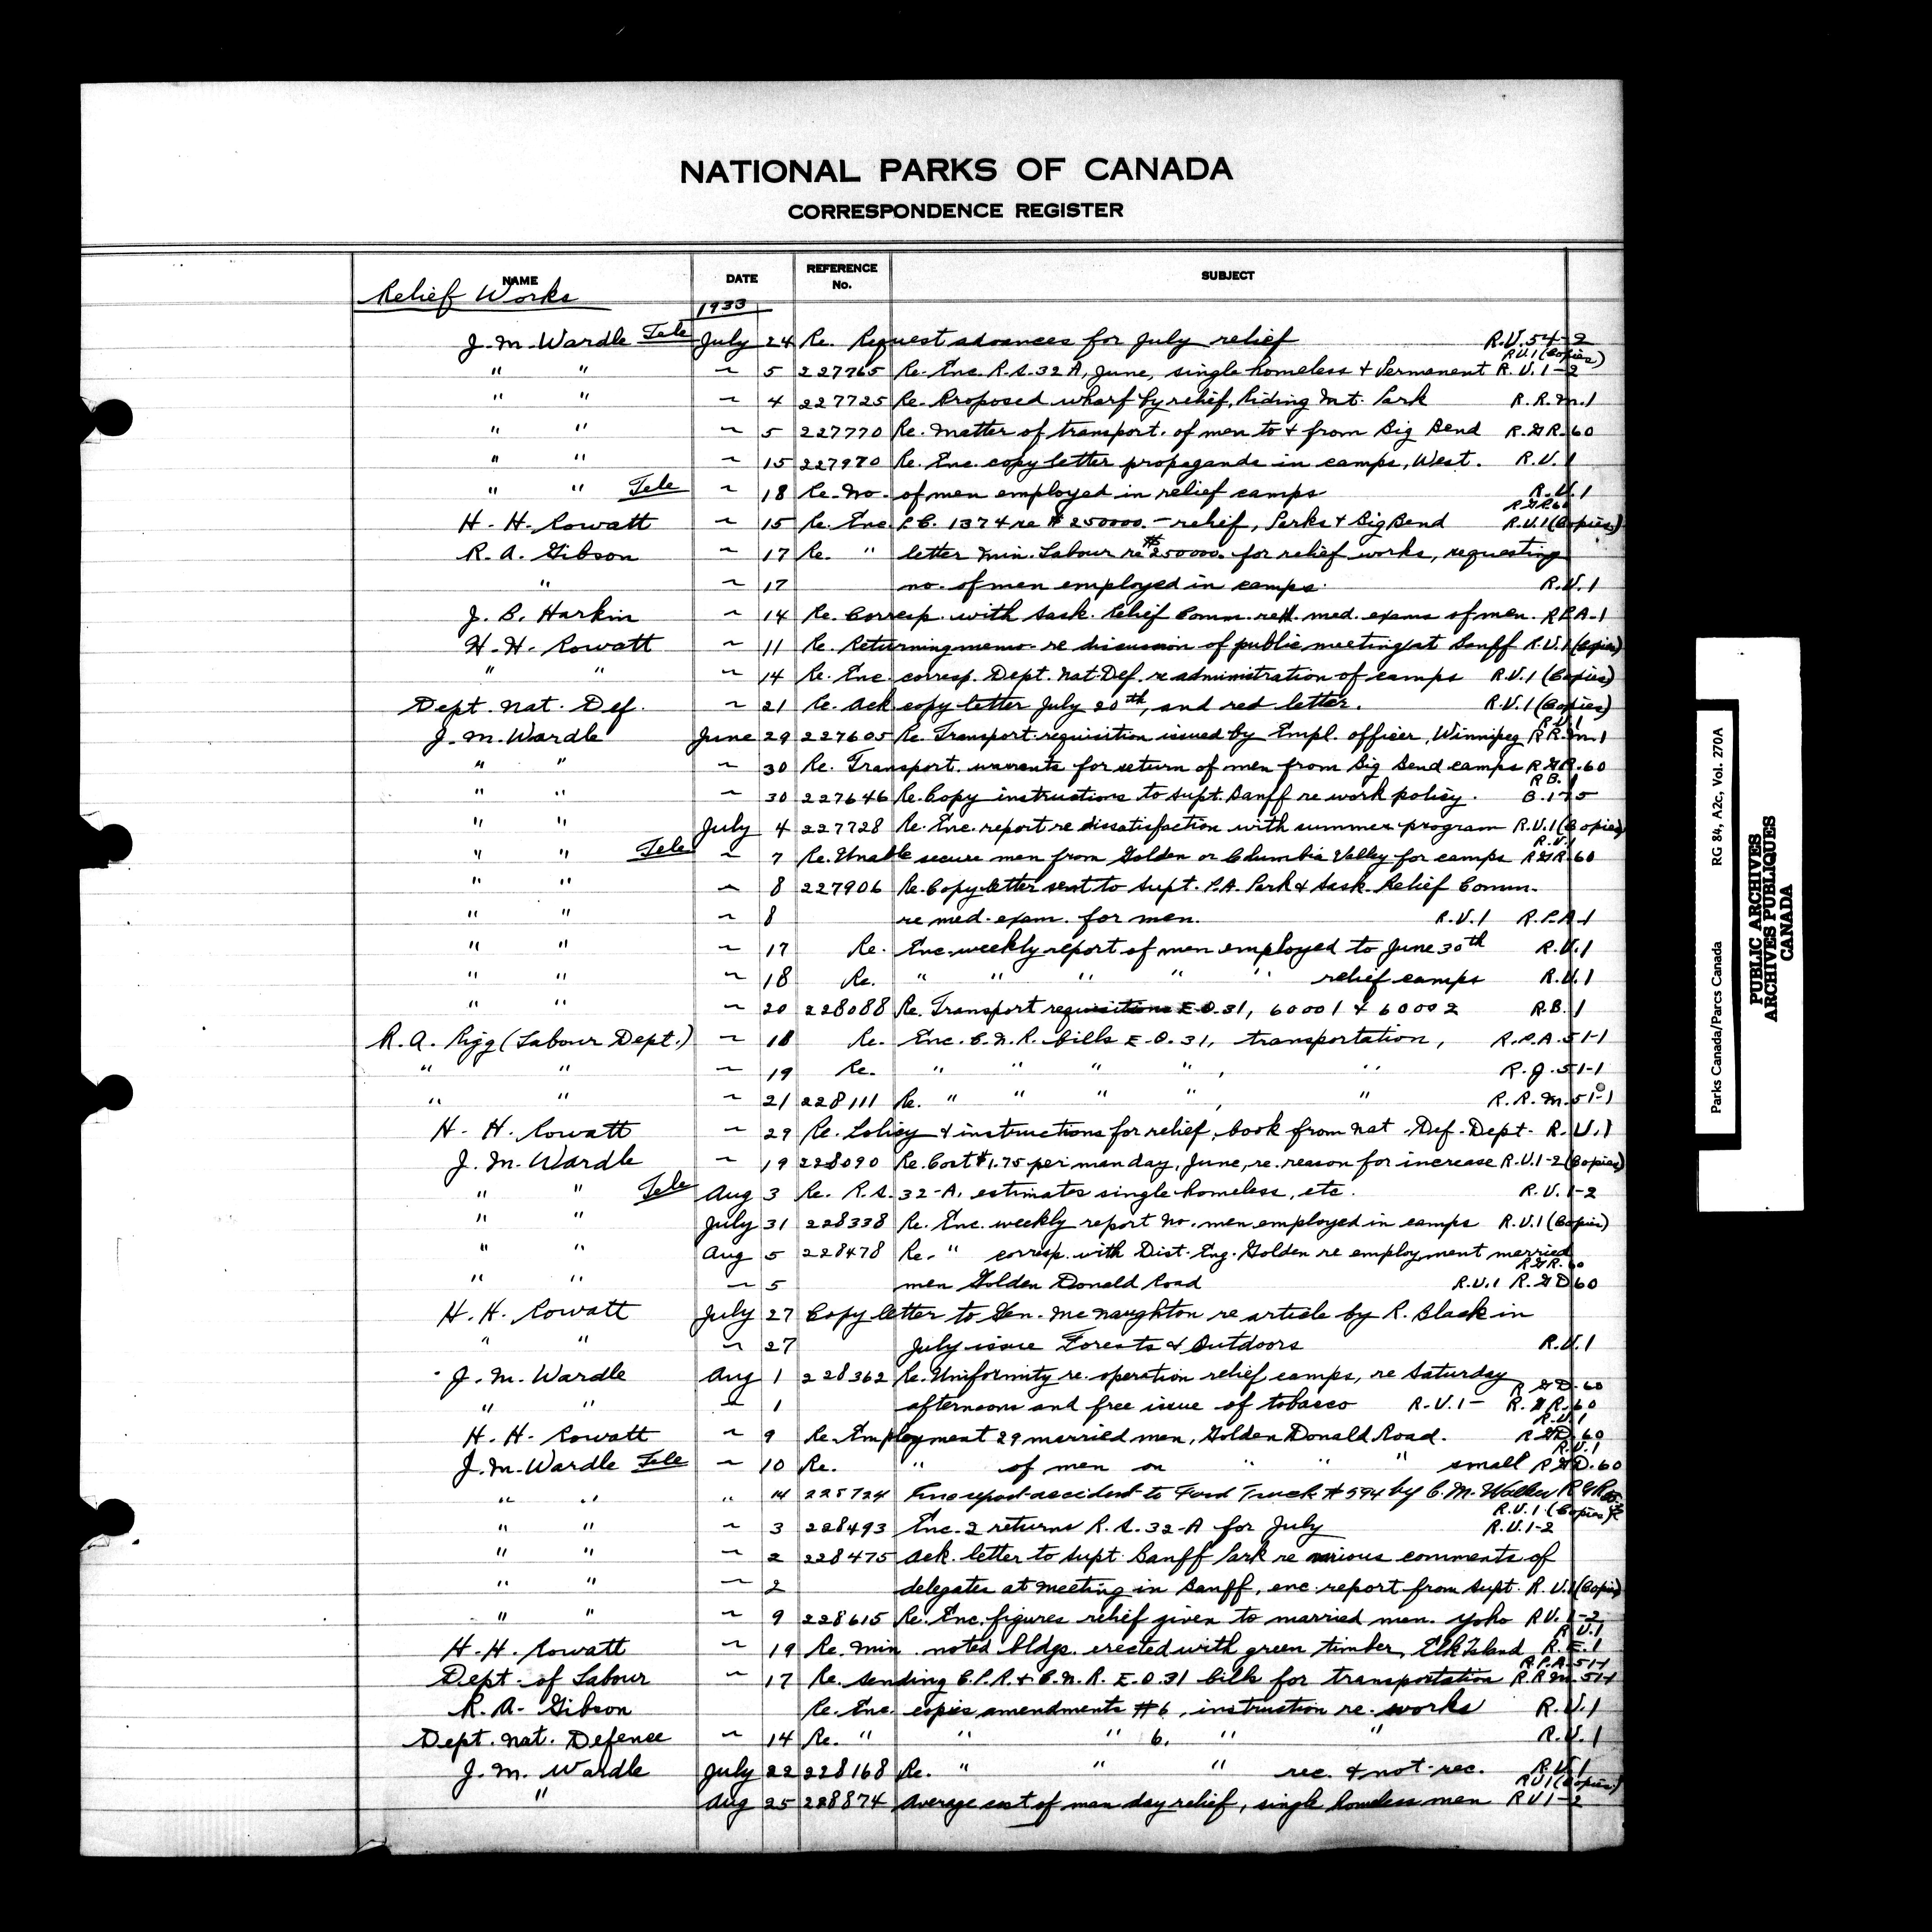 NATIONAL PARKS OF CANADA
CORRESPONDENCE REGISTER
NAME DATE REFERENCE No. SUBJECT
Relief Works 1933
J. M. Wardle Tele July 24 Re. Request advances for July relief R.U.54-2
" " ~ 5 227765 Re. Enc. R.S. 32 A, June, single homeless & Permanent R.U.1 (Copies) R.U.1-2
" " ~ 4 227725 Re. Proposed wharf by relief, Riding Mt. Park R.R.M.1
" " ~ 5 227770 Re. Matter of transport. of men to & from Big Bend R.GR.60
" " ~ 15 227970 Re. Enc. copy letter propaganda in camps, West. R.U.1
" " Tele ~ 18 Re. No. of men employed in relief camps R.U.1
H. H. Rowatt ~ 15 Re. Enc. P.C. 1374 re $250000.- relief, Parks & Big Bend R.GR.60 R.U.1 (Copies)
R. A. Gibson ~ 17 Re. " letter Min. Labour re $250000. for relief works, requesting
" ~ 17 no. of men employed in camps. R.U.1
J. B. Harkin ~ 14 Re. Corresp. with Sask. Relief Comm. re med. exams of men. R.P.A.1
H. H. Rowatt ~ 11 Re. Returning memo re discussion of public meeting at Banff R.U.1 (Copies)
" " ~ 14 Re. Enc. corresp. Dept. Nat. Def. re administration of camps R.U.1 (Copies)
Dept. Nat. Def. ~ 21 Re. Ack copy letter July 20th, and red letter. R.U.1 (Copies)
J. M. Wardle June 29 227605 Re. Transport requisition issued by Empl. officer, Winnipeg R.U.1 R.R.M.1
" " ~ 30 Re. Transport. warrants for return of men from Big Bend camps R.GR.60
" " ~ 30 227646 Re. Copy instructions to Supt. Banff re work policy. R.B.1 B.175
" " July 4 227728 Re. Enc. report re dissatisfaction with summer program R.U.1 (Copies)
" " Tele ~ 7 Re. Unable secure men from Golden or Columbia Valley for camps R.U.1 R.GR.60
" " ~ 8 227906 Re. Copy letter sent to Supt. P.A. Park & Sask. Relief Comm.
" " ~ 8 re med. exam. for men. R.U.1 R.P.A.1
" " ~ 17 Re. Enc. weekly report of men employed to June 30th R.U.1
" " ~ 18 Re. " " " " " relief camps R.U.1
" " ~ 20 228088 Re. Transport requisitions E.O.31, 60001 & 60002 R.B.1
R. A. Rigg (Labour Dept.) ~ 18 Re. Enc. C.N.R. bills E.O.31, transportation, R.P.A.51-1
" " ~ 19 Re. " " " " , " R.J.51-1
" " ~ 21 228111 Re. " " " " , " R.R.M.51-1
H. H. Rowatt ~ 29 Re. Policy & instructions for relief, book from Nat. Def. Dept. R.U.1
J. M. Wardle ~ 19 228090 Re. Cost $1.75 per man day, June, re. reason for increase R.U.1-2 (Copies)
" " Tele Aug 3 Re. R.S. 32-A. estimates single homeless, etc. R.U.1-2
" " July 31 228338 Re. Enc. weekly report no. men employed in camps R.U.1 (Copies)
" " Aug 5 228478 Re. " corresp. with Dist. Eng. Golden re employment married
" " ~ 5 men Golden Donald Road R.U.1 R.GR.60 R.GD.60
H. H. Rowatt July 27 Copy letter to Gen. McNaughton re article by R. Black in
" " ~ 27 July issue Forests & Outdoors R.U.1
J. M. Wardle Aug 1 228362 Re. Uniformity re. operation relief camps, re Saturday
" " ~ 1 afternoons and free issue of tobacco R.U.1- R.GD.60 R.GR.60
H. H. Rowatt ~ 9 Re. Employment 29 married men, Golden Donald Road. R.U.1 R.GD.60
J. M. Wardle Tele ~ 10 Re. " of men on " " " small R.U.1 R.GD.60
" " " 14 225724 Enc report accident to Ford Truck #594 by C. M. Walker R.GR.60
" " ~ 3 228493 Enc. 2 returns R.S. 32-A for July R.U.1 (Copies) R.U.1-2
" " ~ 2 228475 Ack. letter to Supt. Banff Park re various comments of
" " ~ 2 delegates at meeting in Banff, enc. report from Supt. R.U.1 (Copies)
" " ~ 9 228615 Re. Enc. figures relief given to married men. Yoho R.U.1-2
H. H. Rowatt ~ 19 Re. Min. noted bldgs. erected with green timber, Elk Island R.U.1 R.E.1
Dept. of Labour ~ 17 Re. sending C.P.R. & C.N.R. E.O.31 bills for transportation R.P.A.51-1 R.R.M.51-1
R. A. Gibson Re. Enc. copies amendments #6, instruction re. works R.U.1
Dept. Nat. Defence ~ 14 Re. " " " 6. " " R.U.1
J. M. Wardle July 22 228168 Re. " " " rec. & not rec. R.U.1
" Aug 25 228874 Average cost of man day relief, single homeless men R.U.1 (Copies) R.U.1-2
Parks Canada/Parcs Canada RG 84, A2c, Vol. 270A
PUBLIC ARCHIVES
ARCHIVES PUBLIQUES
CANADA